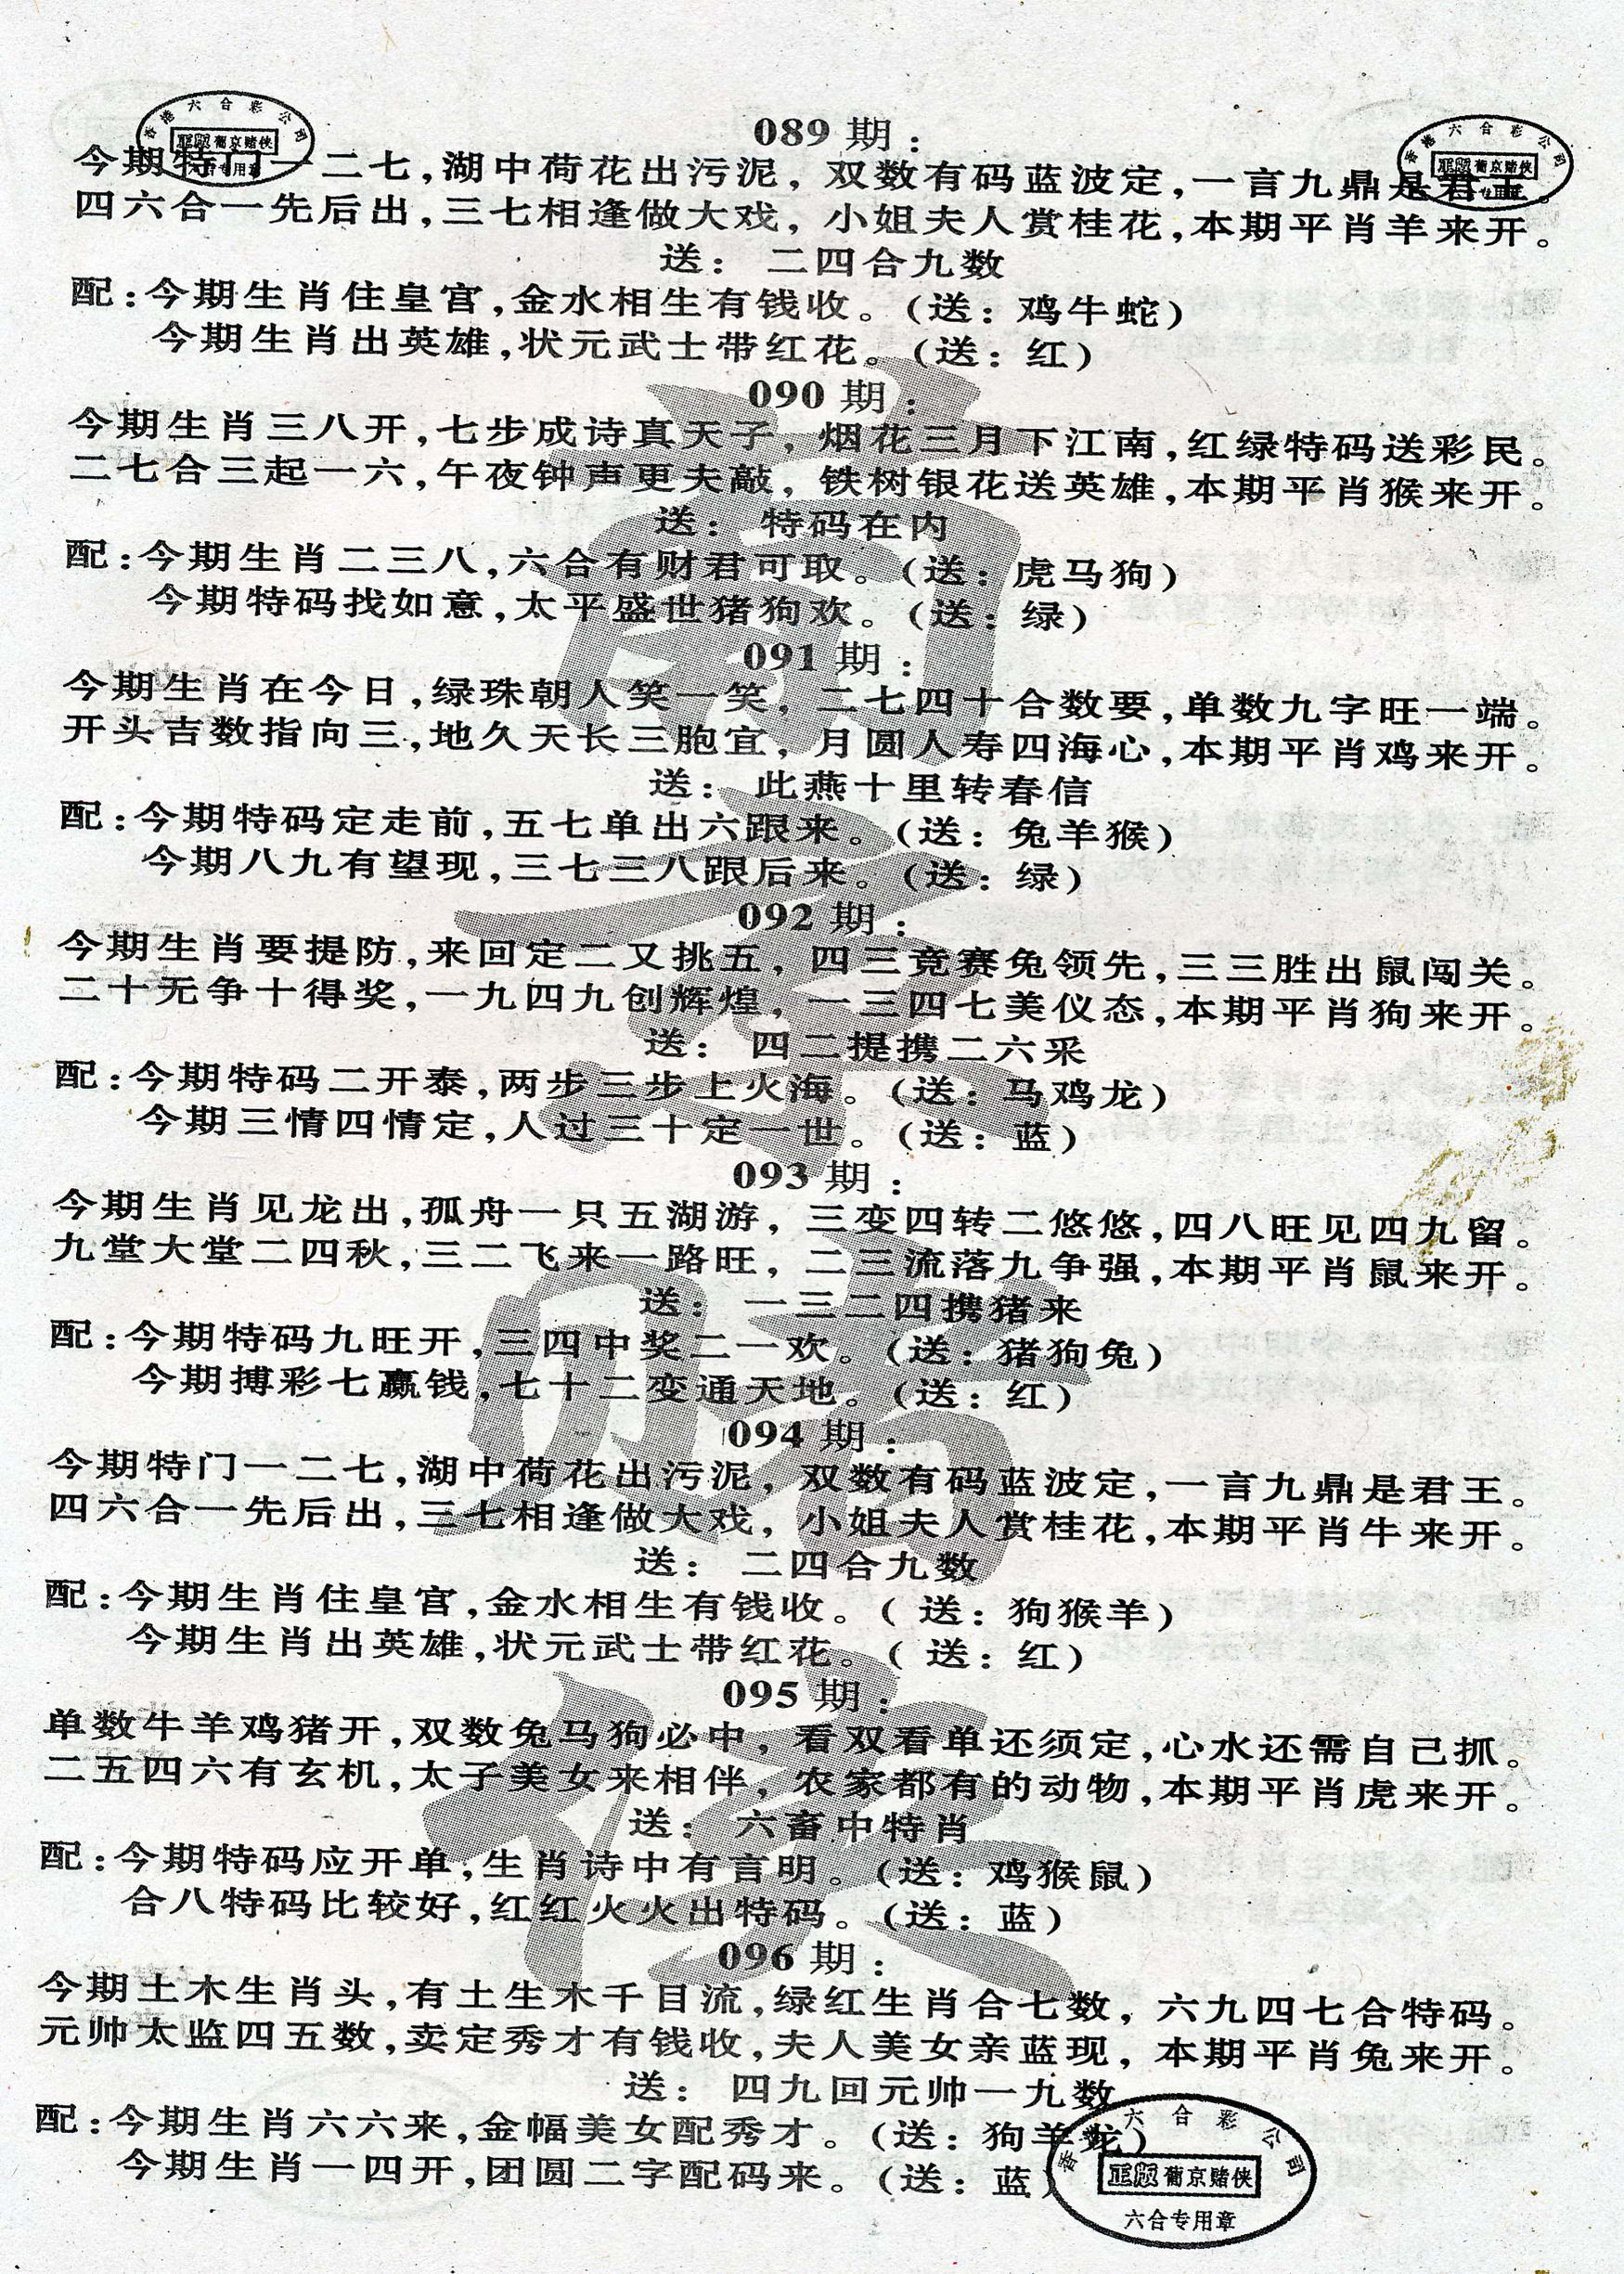 香港六合彩公司
正版 葡京赌侠
六合专用章
香港六合彩公司
正版 葡京赌侠
六合专用章
089 期：
今期特门一二七,湖中荷花出污泥，双数有码蓝波定,一言九鼎是君王。
四六合一先后出,三七相逢做大戏，小姐夫人赏桂花,本期平肖羊来开。
送： 二四合九数
配:今期生肖住皇宫,金水相生有钱收。(送：鸡牛蛇)
今期生肖出英雄,状元武士带红花。(送：红)
090 期：
今期生肖三八开,七步成诗真天子，烟花三月下江南,红绿特码送彩民。
二七合三起一六,午夜钟声更夫敲，铁树银花送英雄,本期平肖猴来开。
送： 特码在内
配:今期生肖二三八,六合有财君可取。(送：虎马狗)
今期特码找如意,太平盛世猪狗欢。(送：绿)
091 期：
今期生肖在今日,绿珠朝人笑一笑，二七四十合数要,单数九字旺一端。
开头吉数指向三,地久天长三胞宜，月圆人寿四海心,本期平肖鸡来开。
送： 此燕十里转春信
配:今期特码定走前,五七单出六跟来。(送：兔羊猴)
今期八九有望现,三七三八跟后来。(送：绿)
092 期：
今期生肖要提防,来回定二又挑五，四三竞赛兔领先,三三胜出鼠闯关。
二十无争十得奖,一九四九创辉煌，一三四七美仪态,本期平肖狗来开。
送： 四二提携二六采
配:今期特码二开泰,两步三步上火海。(送：马鸡龙)
今期三情四情定,人过三十定一世。(送：蓝)
093 期：
今期生肖见龙出,孤舟一只五湖游，三变四转二悠悠,四八旺见四九留。
九堂大堂二四秋,三二飞来一路旺，二三流落九争强,本期平肖鼠来开。
送： 一三二四携猪来
配:今期特码九旺开,三四中奖二一欢。(送：猪狗兔)
今期搏彩七赢钱,七十二变通天地。(送：红)
094 期：
今期特门一二七,湖中荷花出污泥，双数有码蓝波定,一言九鼎是君王。
四六合一先后出,三七相逢做大戏，小姐夫人赏桂花,本期平肖牛来开。
送： 二四合九数
配:今期生肖住皇宫,金水相生有钱收。( 送：狗猴羊)
今期生肖出英雄,状元武士带红花。( 送：红)
095 期：
单数牛羊鸡猪开,双数兔马狗必中，看双看单还须定,心水还需自己抓。
二五四六有玄机,太子美女来相伴，农家都有的动物,本期平肖虎来开。
送： 六畜中特肖
配:今期特码应开单,生肖诗中有言明。(送：鸡猴鼠)
合八特码比较好,红红火火出特码。(送：蓝)
096 期：
今期土木生肖头,有土生木千目流,绿红生肖合七数，六九四七合特码。
元帅太监四五数,卖定秀才有钱收,夫人美女亲蓝现，本期平肖兔来开。
送： 四九回元帅一九数
配:今期生肖六六来,金幅美女配秀才。(送：狗羊龙)
今期生肖一四开,团圆二字配码来。(送：蓝)
香港六合彩公司
正版 葡京赌侠
六合专用章
葡京赌侠